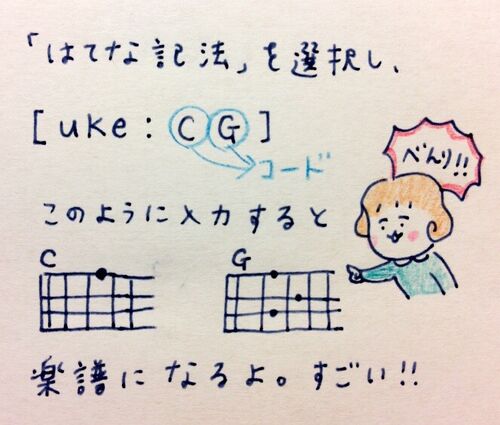 「はてな記法」を選択し、
[uke: C G]
コード
べんり!!
このように入力すると
C G
楽譜になるよ。すごい!!